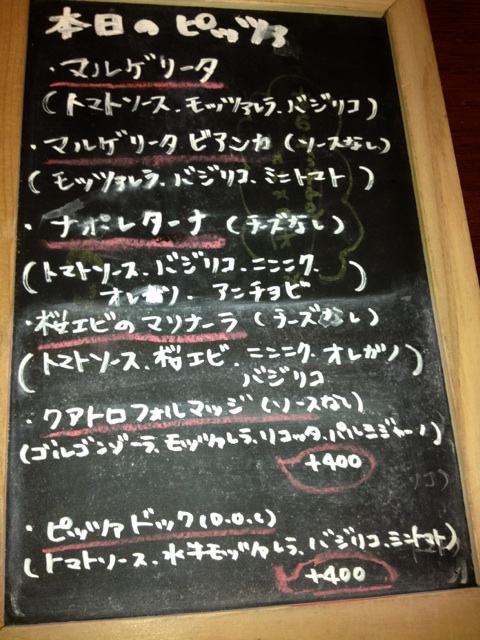 本日のピッツァ
・マルゲリータ
(トマトソース、モッツァレラ、バジリコ)
・マルゲリータ ビアンカ (ソースなし)
(モッツァレラ、バジリコ、ミニトマト)
・ナポレターナ (チーズなし)
(トマトソース、バジリコ、ニンニク、
オレガノ、アンチョビ)
・桜エビのマリナーラ (チーズなし)
(トマトソース、桜エビ、ニンニク、オレガノ
バジリコ)
・クアトロフォルマッジ (ソースなし)
(ゴルゴンゾーラ、モッツァレラ、リコッタ、パルミジャーノ)
+400
・ピッツァ ドック (D.O.C)
(トマトソース、水牛モッツァレラ、バジリコ、ミニトマト)
+400